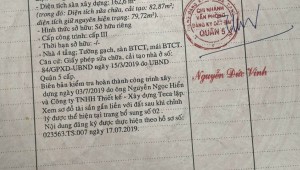 - Diện tích sàn xây dựng: 162,6 m²
(trong đó: Diện tích sửa chữa, cải tạo: 82,87m²;
diện tích giữ nguyên hiện trạng: 79,72m²).
- Hình thức sở hữu: Sở hữu riêng
- Cấp công trình: cấp III
- Thời hạn sở hữu: -/-
- Nhà 4 tầng; Tường gạch, sàn BTCT, mái BTCT.
Căn cứ: Giấy phép sửa chữa, cải tạo nhà ở số:
84/GPXD-UBND ngày 15/3/2019 do UBND
Quận 5 cấp.
Biên bản kiểm tra hoàn thành công trình xây
dựng ngày 03/7/2019 do ông Nguyễn Ngọc Hiển
và Công ty TNHH Thiết kế - Xây dựng Teca lập.
Xem sơ đồ tài sản gắn liền với đất sau khi chỉnh
lý được thể hiện tại trang bổ sung số 02
Nội dung đăng ký được thực hiện theo hồ sơ số:
023563.TS.007 ngày 17.07.2019.
CHI NHÁNH
VĂN PHÒNG
ĐĂNG KÝ ĐẤT ĐAI
QUẬN 5
Nguyễn Đức Vinh